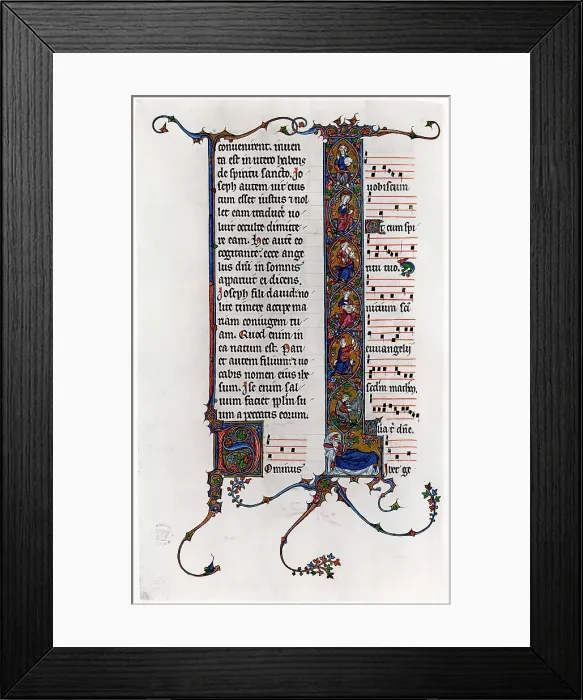 conuenirent. inuen
ta est in utero habens
de spiritu sancto. Jo
seph autem uir eius
cum esset iustus ⁊ nol
let eam traducere uo
luit occulte dimitte
re eam. Hec autē eo
cogitante: ecce ange
lus dn̄i in somnis
apparuit ei dicens.
Joseph fili dauid: no
lite timere accipe ma
riam coniugem tu
am. Quod enim in
ea natum est. Pari
et autem filium: ⁊ uo
cabis nomen eius ihe
sum. Ipse enim sal
uum faciet pplm su
um a peccatis eorum.
Dominus
uobiscum
Et cum spi
ritu tuo.
nicium scī
euuangelij
scdm matheū.
Gloria t̄ dn̄e.
Liber ge